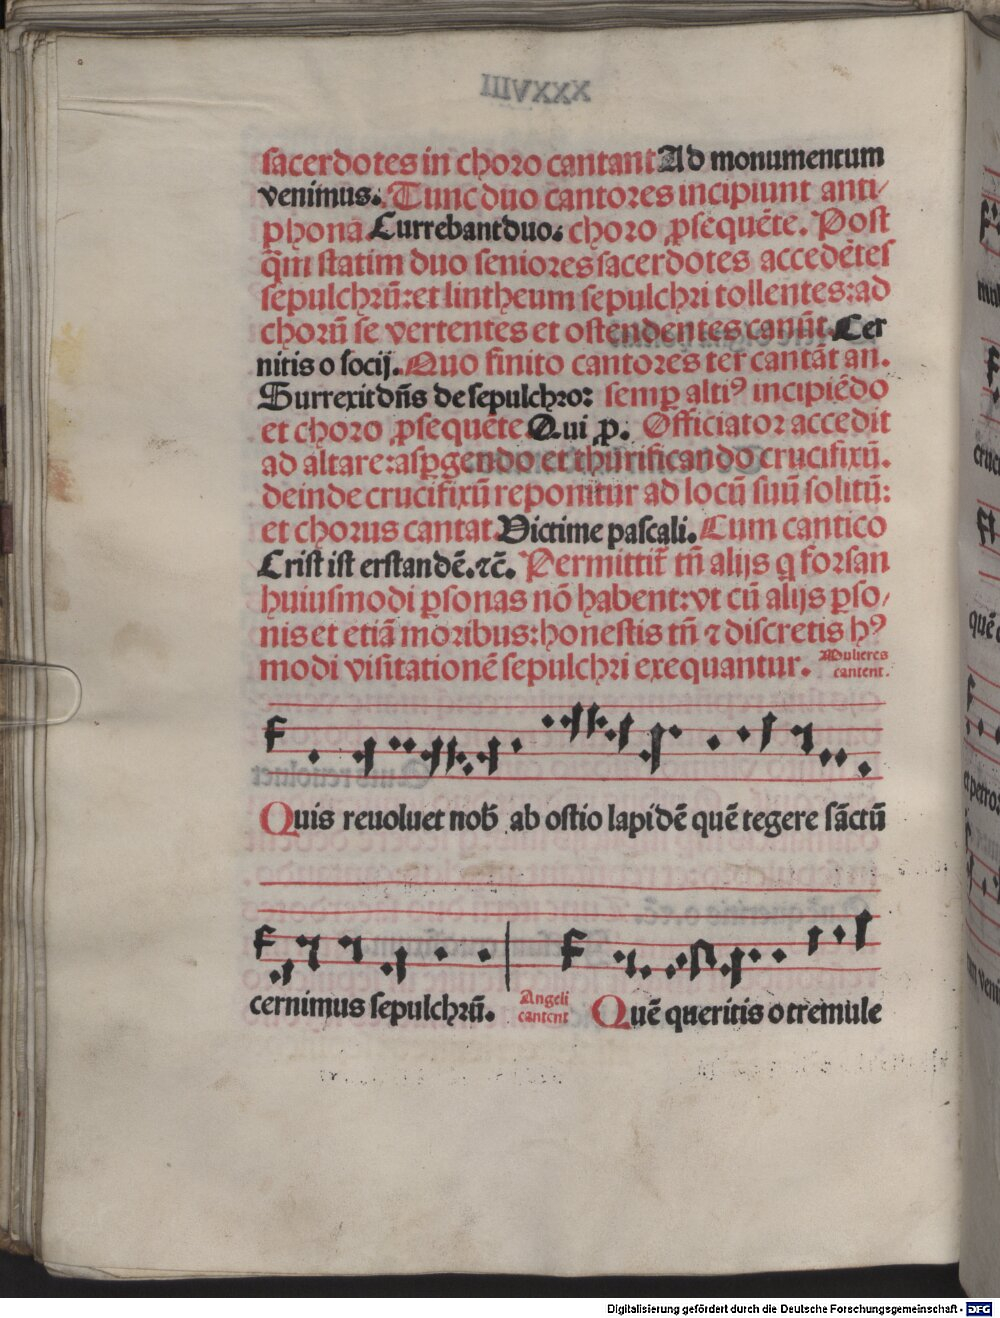 sacerdotes in choro cantant Ad monumentum
venimus. Tunc duo cantores incipiunt anti/
phonā Currebant duo. choro ꝓsequēte. Post
q̄m statim duo seniores sacerdotes accedētes
sepulchrū: et lintheum sepulchri tollentes: ad
chorū se vertentes et ostendentes canūt. Cer
nitis o socij. Quo finito cantores ter cantāt an.
Surrexit dn̄s de sepulchro: semꝑ altiꝰ incipiēdo
et choro ꝓsequēte Qui ꝓ. Officiator accedit
ad altare: asꝑgendo et thurificando crucifixū.
deinde crucifixū reponitur ad locū suū solitū:
et chorus cantat Victime pascali. Cum cantico
Crist ist erstandē. ⁊c̄. Permittit̄ tn̄ alijs q forsan
huiusmodi ꝑsonas nō habent: vt cū alijs ꝑso/
nis et etiā moribus: honestis tn̄ ⁊ discretis hꝰ
modi visitationē sepulchri exequantur. Mulieres
cantent.
Quis reuoluet nob̄ ab ostio lapidē quē tegere sāctū
cernimus sepulchrū. Angeli
cantent Quē queritis o tremule
Digitalisierung gefördert durch die Deutsche Forschungsgemeinschaft - DFG